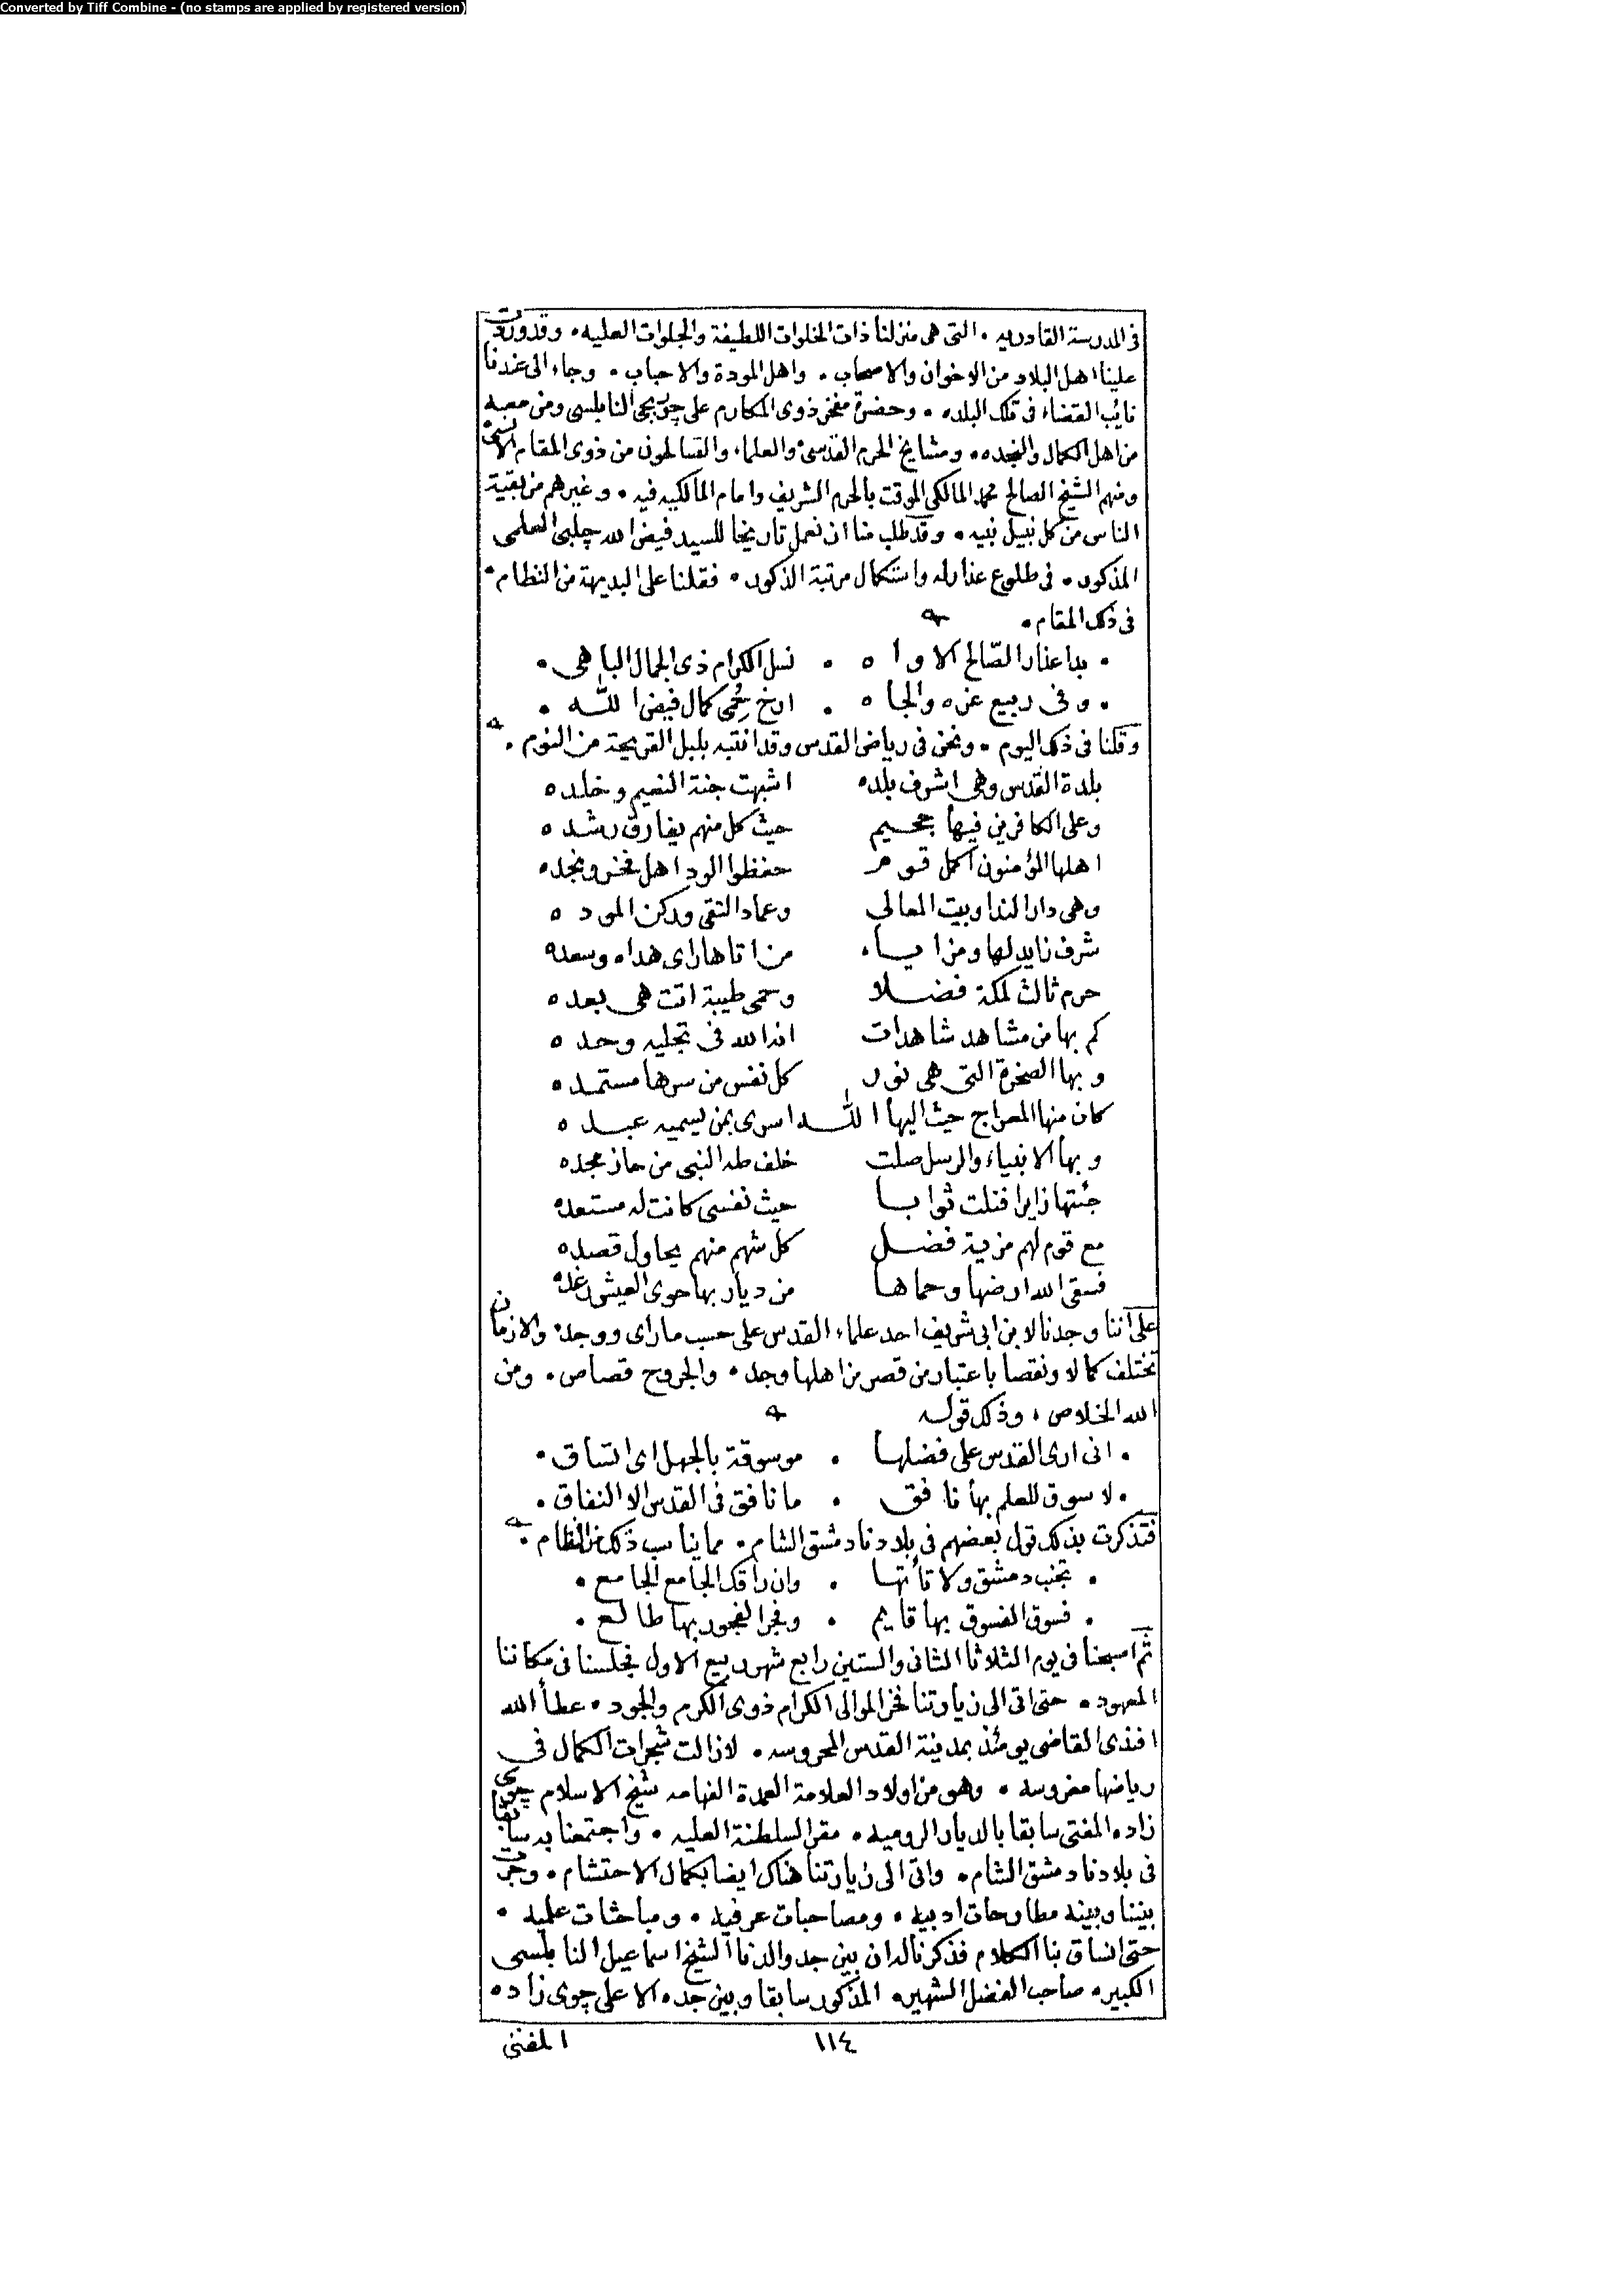 Converted by Tiff Combine - (no stamps are applied by registered version)
فى المدرسة القادريه . التى هى منزلنا ذات الخلوات اللطيفة والجلوات العليه . وقد وردت
علينا اهل البلاد من الاخوان والاصحاب . واهل المودة والاحباب . وجاء الى عندنا
نائب القضاء فى تلك البلده . وحضرة مفخر ذوى المكارم على چوربجى النابلسى ومن معه
من اهل الكمال والنجده . ومشايخ الحرم القدسى والعلماء والصالحون من ذوى المقام الانسى
ومنهم الشيخ الصالح محمد المالكى الموقت بالحرم الشريف وامام المالكيه فيه . وغيرهم من بقية
الناس من كل نبيل نبيه . وقد طلب منا ان نعمل تاريخا للسيد فيض الله چلبى العلمى
المذكور . فى طلوع عذاره واستكمال مرتبة الذكور . فقلنا على البديهة من النظام .
فى ذلك المقام .
. بدا عذار الصّالح الاواه . نسل الكرام ذى الجمال الباهى .
. وفى ربيع عزه والجاه . ارخ كمال فيض الله .
وقلنا فى ذلك اليوم . ونحن فى رياض القدس وقد انتبه بلبل القريحة من النوم .
بلدة القدس وهى اشرف بلده اشبهت جنة النعيم وخلده
وعلى الكافرين فيها جحيم حيث كل منهم يفارق رشده
اهلها المؤمنون اكمل قوم حفظوا الود اهل فخر ونجده
وهى دار الندا وبيت المعالى وعماد التقى وركن الموده
شرف زايد لها ومزايا من اتاها راى هداه وسعده
حرم ثالث لمكة فضلا وحمى طيبة اتت هى بعده
كم بها من مشاهد شاهدات ان الله فى تجليه وحده
وبها الصخرة التى هى نور كل نفس من سرها مستمده
كان منها المعراج حيث اليها الله اسرى بمن يسميه عبده
وبها الانبياء والرسل صلت خلف طه النبى من حاز مجده
جئتها زايرا فنلت ثوابا حيث نفسى كانت له مستعده
مع قوم لهم مزية فضل كل شهم منهم يحاول قصده
فسقى الله ارضها وحماها من ديار بها حوى العيش رغده
على اننا وجدنا لابن ابى شريف احد علماء القدس على حسب ماراى ووجد . والازمان
تختلف كمالا ونقصا باعتبار من قصر من اهلها وجد . والجروح قصاص . ومن
الله الخلاص . وذلك قوله
. انى ارى القدس على فضلها . موسوقة بالجهل اى اتساق .
. لا سوق للعلم بها نافق . ما نافق فى القدس الا النفاق .
فتذكرت بذلك قول بعضهم فى بلادنا دمشق الشام . مما يناسب ذلك من النظام .
. تجنب دمشق ولا تأتها . وان راقك الجامع الجامع .
. فسوق الفسوق بها قايم . وفجر الفجور بها طالع .
ثم اصبحنا فى يوم الثلاثا الثانى والستين رابع شهر ربيع الاول فجلسنا فى مكاننا
المعهود . حتى اتى الى زيارتنا فخر الموالى الكرام ذوى الكرم والجود . عطأ الله
افندى القاضى يومئذ بمدينة القدس المحروسه . لازالت شجرات الكمال فى
رياضها مغروسه . وهو من اولاد العلامة العمدة الفهامه شيخ الاسلام چوى
زاده المفتى سابقا بالديار الروميه . مقر السلطنة العليه . واجتمعنا به سابقا
فى بلادنا دمشق الشام . واتى الى زيارتنا هناك ايضا بكمال الاحتشام . وجرت
بيننا وبينه مطارحات ادبيه . ومصاحبات عرفيه . ومباحثات علميه .
حتى انساق بنا الكلام فذكرنا له ان بين جد والدنا الشيخ اسماعيل النابلسى
الكبير . صاحب الفضل الشهير . المذكور سابقا وبين جده الاعلى چوى زاده
١١٤
المفتى